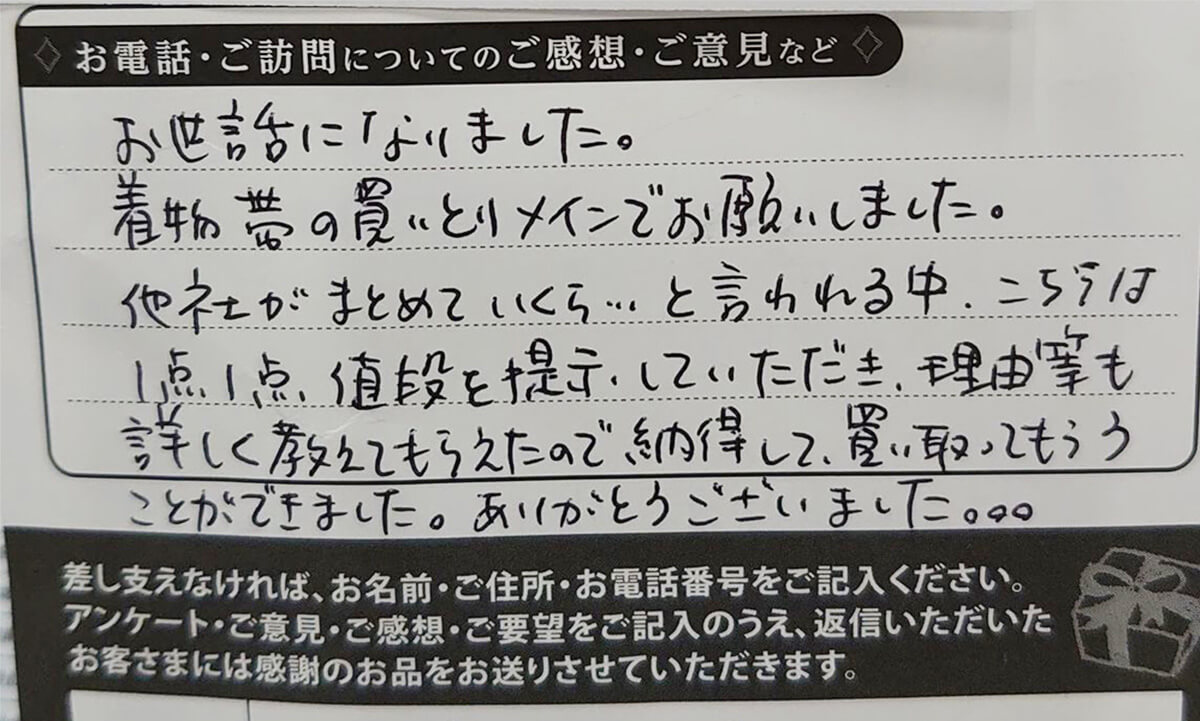 お電話・ご訪問についてのご感想・ご意見など
お世話になりました。
着物帯の買いとりメインでお願いしました。
他社がまとめていくら…と言われる中、こちらは
1点1点、値段を提示していただき、理由等も
詳しく教えてもらえたので納得して、買い取ってもらう
ことができました。ありがとうございました。。。。
差し支えなければ、お名前・ご住所・お電話番号をご記入ください。
アンケート・ご意見・ご感想・ご要望をご記入のうえ、返信いただいた
お客さまには感謝のお品をお送りさせていただきます。